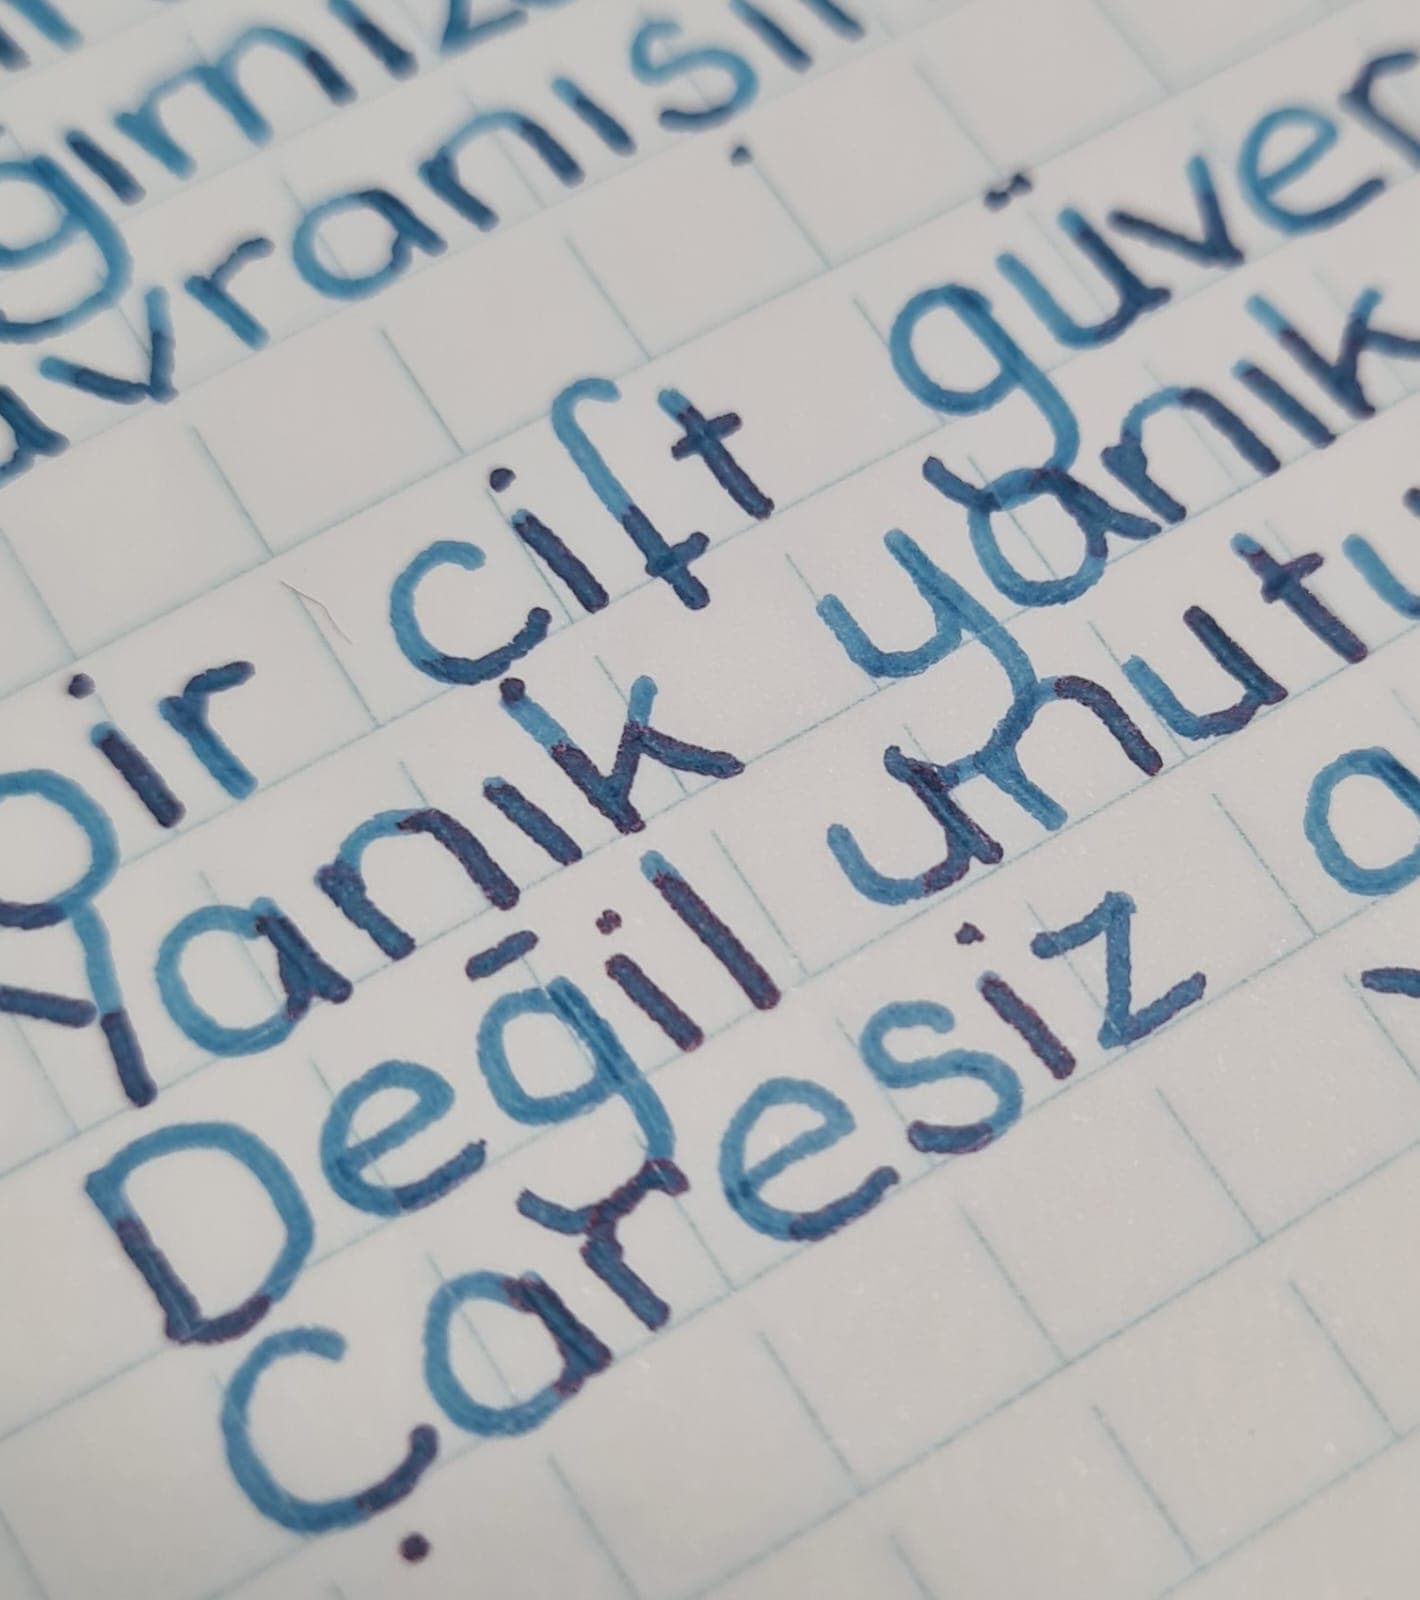 ğımız
avranışı
bir çift güver
Yanık yanık
Değil unutu
Çaresiz